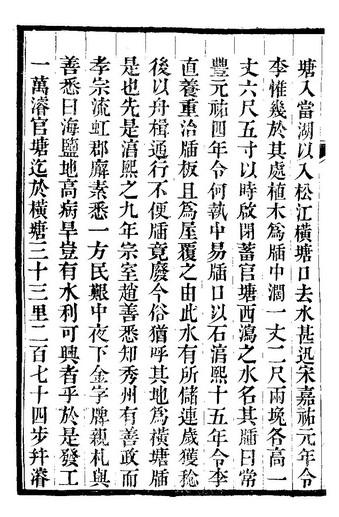 塘入當湖以入松江橫塘口去水甚迅宋嘉祐元年令
李惟幾於其處植木爲牐中濶一丈二尺兩堍各高一
丈六尺五寸以時啟閉蓄官塘西瀉之水名其牐曰常
豐元祐四年令何執中易牐口以石淳熙十五年令李
直養重治牐板且爲屋覆之由此水有所儲連歲獲稔
後以舟楫通行不便牐竟廢今俗猶呼其地爲橫塘牐
是也先是淳熙之九年宗室趙善悉知秀州有善政而
孝宗流虹郡廨素悉一方民艱中夜下金字牌親札與
善悉曰海鹽地高病旱豈有水利可興者乎於是發工
一萬濬官塘迄於橫塘三十三里二百七十四步幷濬